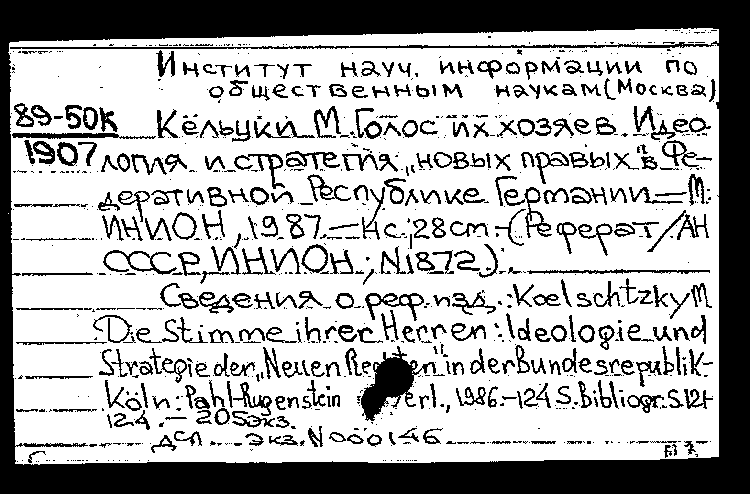 Институт науч. информации по
общественным наукам (Москва)
89-50к
1907
Кёльцки М. Голос их хозяев. Идео-
логия и стратегия „новых правых" в Фе-
деративной Республике Германии. — М.:
ИНИОН, 1987. — 11с.; 28см. — (Реферат / АН
СССР, ИНИОН ; N1872).
Сведения о реф. изд.: Koelschtzky M
Die Stimme ihrer Herren: Ideologie und
Strategie der „Neuen Rechten" in der Bundesrepublik.-
Köln: Pahl-Rugenstein Verl., 1986.-124 S. Bibliogr.: S.121-
124. — 205экз.
ДСП. Экз. N 000146